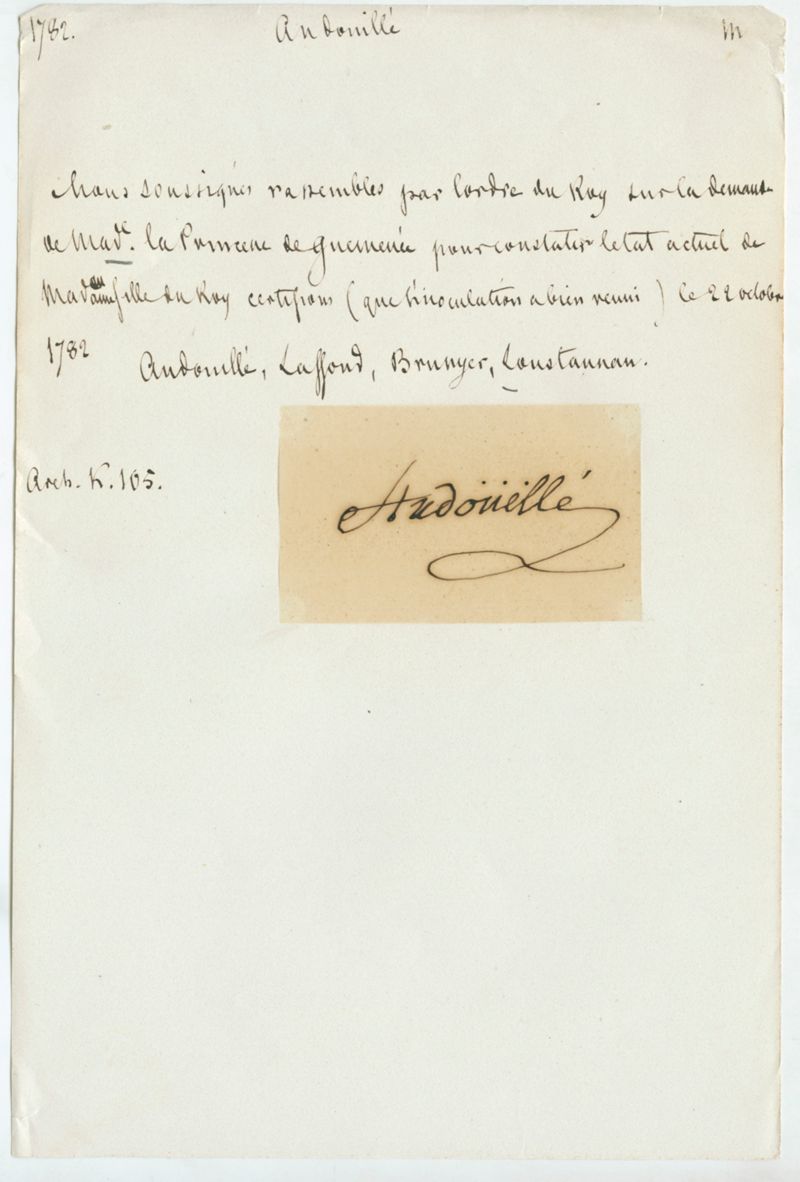 1782. Andouillé m
Nous soussignés rassembles par l'ordre du Roy sur la demande
de Made. la Princesse de Guemenée pour constater l'etat actuel de
Madame fille du Roy certifions (que l'inoculation a bien reussi) le 22 octobre
1782 Andouillé, Lassond, Brunyer, Loustaunau.
Arch. K. 105.
Andoüillé